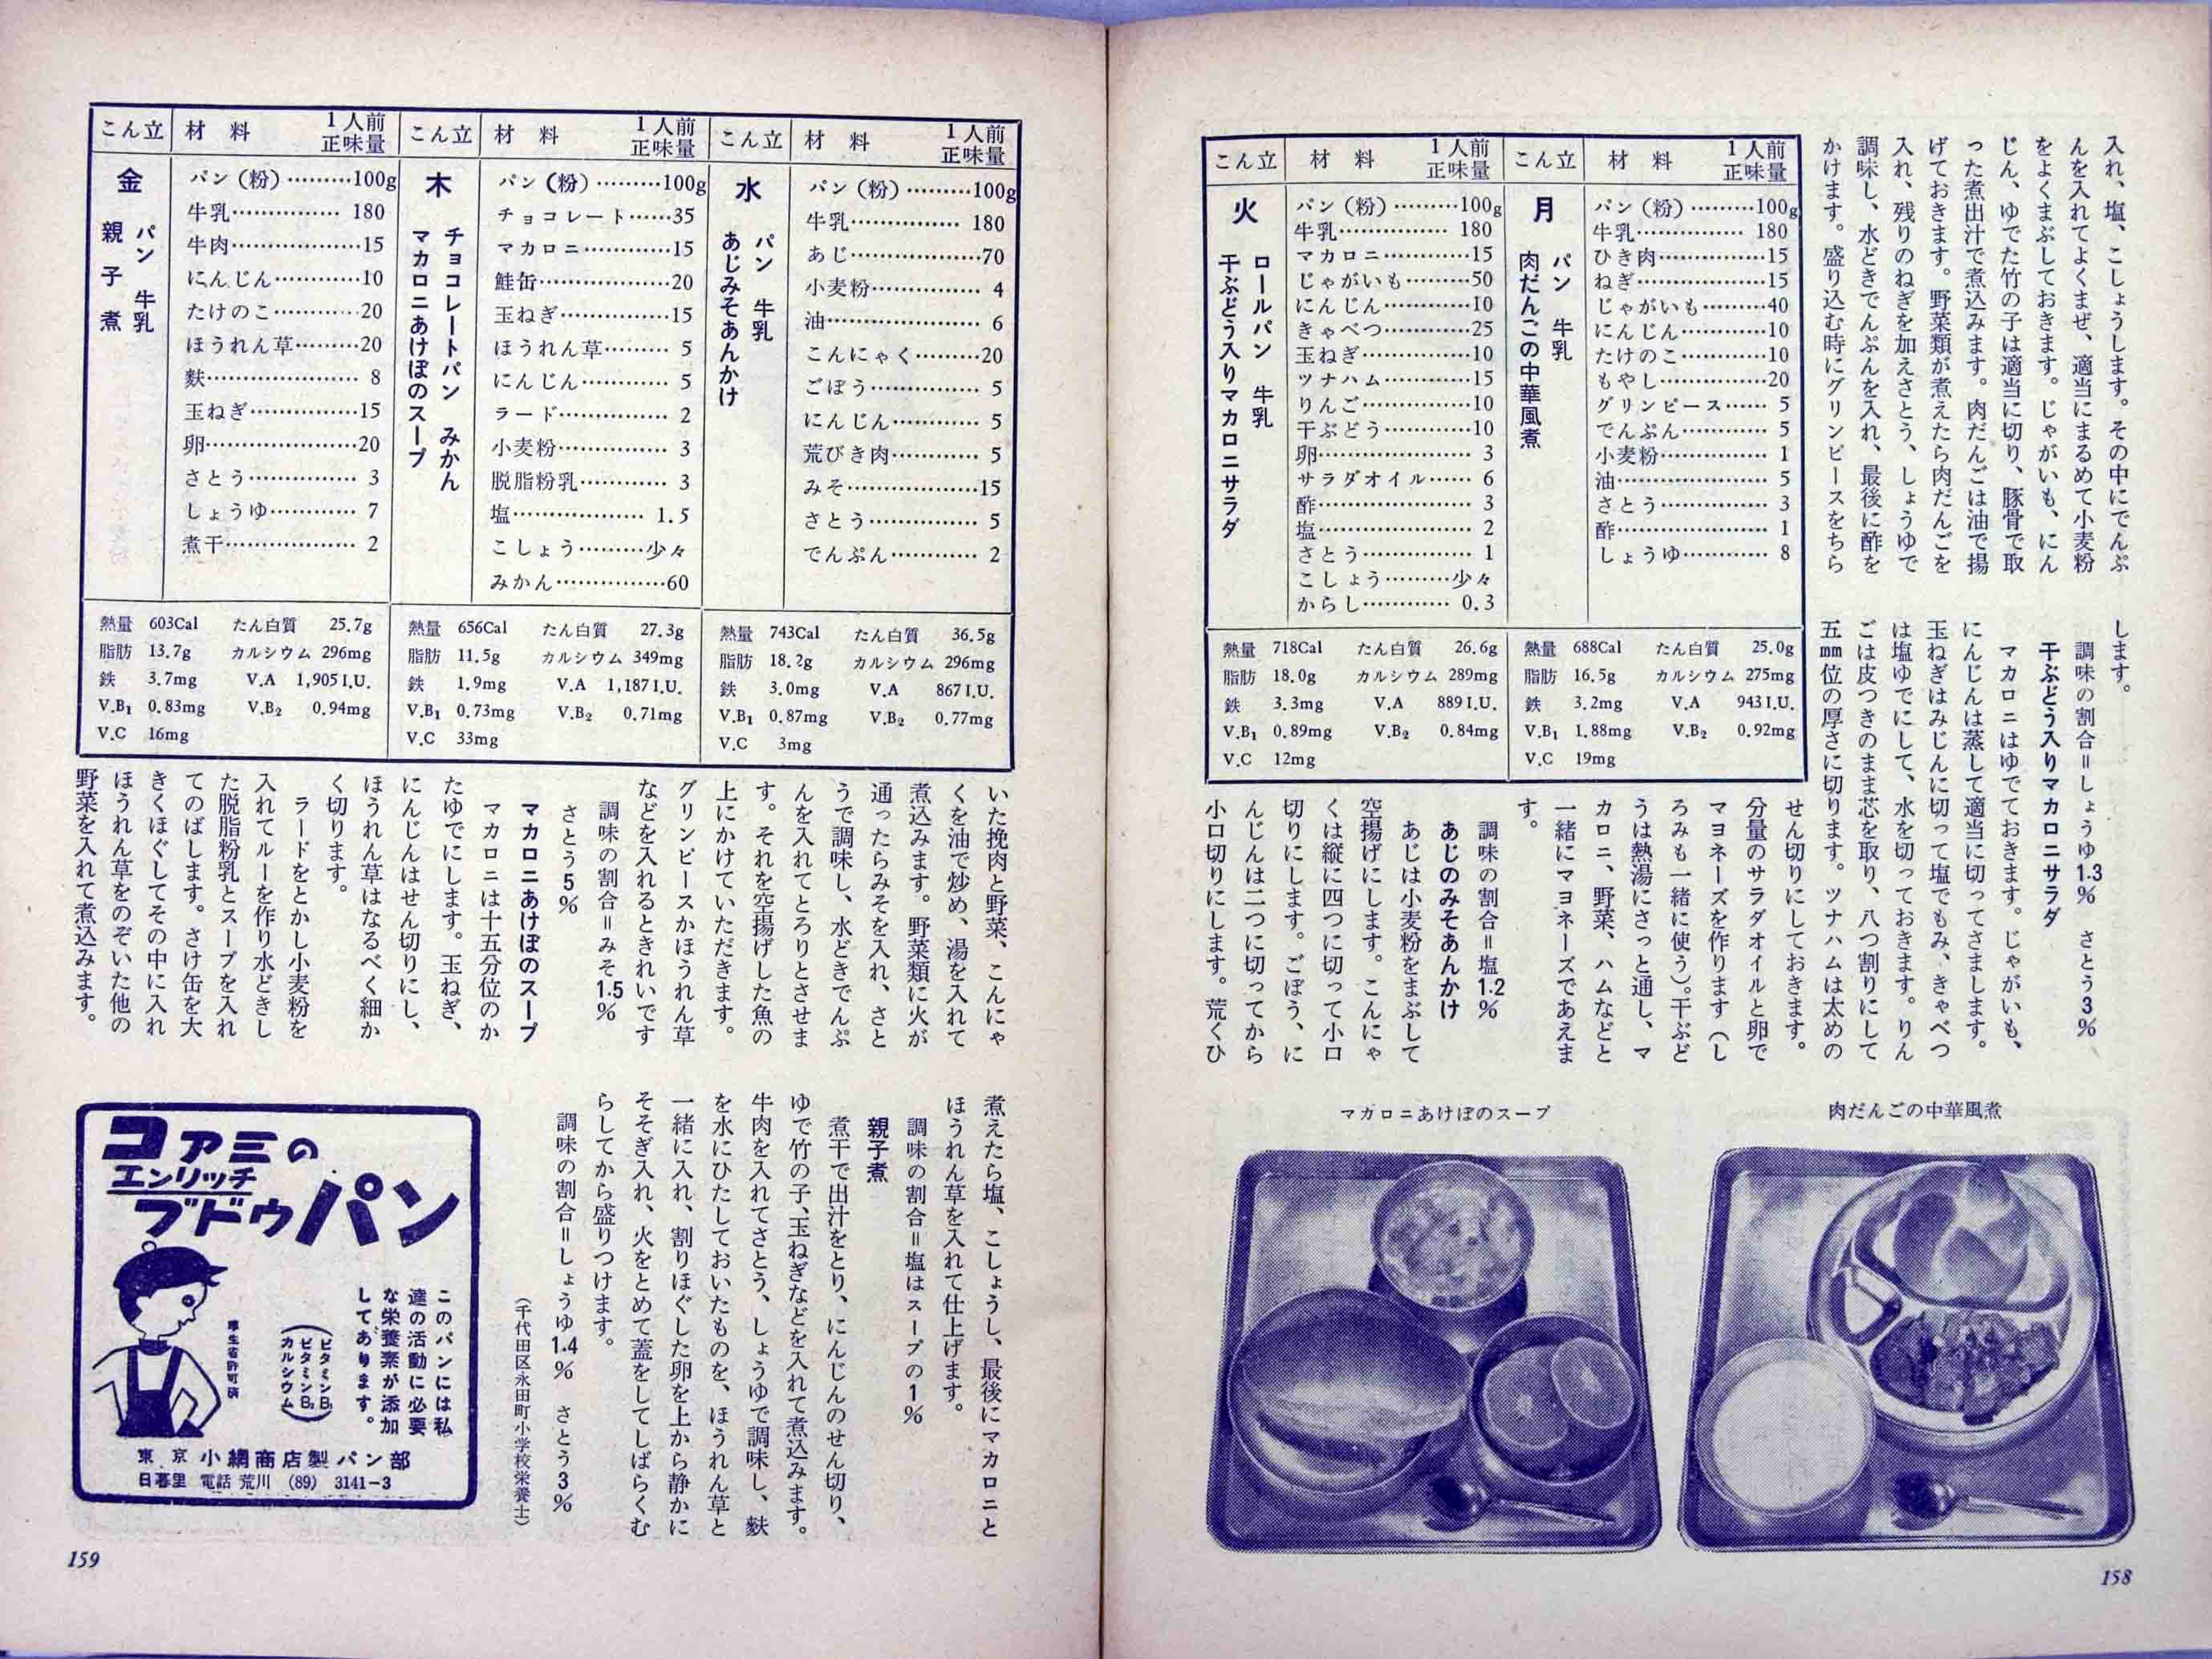 入れ、塩、こしょうします。その中にでんぷ
んを入れてよくまぜ、適当にまるめて小麦粉
をよくまぶしておきます。じゃがいも、にん
じん、ゆでた竹の子は適当に切り、豚骨で取
った煮出汁で煮込みます。肉だんごは油で揚
げておきます。野菜類が煮えたら肉だんごを
入れ、残りのねぎを加えさとう、しょうゆで
調味し、水どきでんぷんを入れ、最後に酢を
かけます。盛り込む時にグリンピースをちら
します。
調味の割合＝しょうゆ1.3％　さとう3％
干ぶどう入りマカロニサラダ
マカロニはゆでておきます。じゃがいも、
にんじんは蒸して適当に切ってさまします。
玉ねぎはみじんに切って塩でもみ、きゃべつ
は塩ゆでにして、水を切っておきます。りん
ごは皮つきのまま芯を取り、八つ割りにして
五㎜位の厚さに切ります。ツナハムは太めの
せん切りにしておきます。
分量のサラダオイルと卵で
マヨネーズを作ります（し
ろみも一緒に使う）。干ぶど
うは熱湯にさっと通し、マ
カロニ、野菜、ハムなどと
一緒にマヨネーズであえま
す。
調味の割合＝塩1.2％
あじのみそあんかけ
あじは小麦粉をまぶして
空揚げにします。こんにゃ
くは縦に四つに切って小口
切りにします。ごぼう、に
んじんは二つに切ってから
小口切りにします。荒くひ
こん立　材料　1人前正味量
月
パン　牛乳
肉だんごの中華風煮
パン（粉）………100g
牛乳…………… 180
ひき肉……………15
ねぎ………………15
じゃがいも………40
にんじん…………10
たけのこ…………10
もやし……………20
グリンピース…… 5
でんぷん………… 5
小麦粉…………… 1
油………………… 5
さとう…………… 3
酢………………… 1
しょうゆ………… 8
熱量 688Cal　たん白質 25.0g
脂肪 16.5g　カルシウム 275mg
鉄 3.2mg　V.A 943I.U.
V.B₁ 1.88mg　V.B₂ 0.92mg
V.C 19mg
こん立　材料　1人前正味量
火
ロールパン　牛乳
干ぶどう入りマカロニサラダ
パン（粉）………100g
牛乳…………… 180
マカロニ…………15
じゃがいも………50
にんじん…………10
きゃべつ…………25
玉ねぎ……………10
ツナハム…………15
りんご……………10
干ぶどう…………10
卵………………… 3
サラダオイル…… 6
酢………………… 3
塩………………… 2
さとう…………… 1
こしょう………少々
からし………… 0.3
熱量 718Cal　たん白質 26.6g
脂肪 18.0g　カルシウム 289mg
鉄 3.3mg　V.A 889I.U.
V.B₁ 0.89mg　V.B₂ 0.84mg
V.C 12mg
肉だんごの中華風煮
マカロニあけぼのスープ
158
こん立　材料　1人前正味量
水
パン　牛乳
あじみそあんかけ
パン（粉）………100g
牛乳…………… 180
あじ………………70
小麦粉…………… 4
油………………… 6
こんにゃく………20
ごぼう…………… 5
にんじん………… 5
荒びき肉………… 5
みそ………………15
さとう…………… 5
でんぷん………… 2
熱量 743Cal　たん白質 36.5g
脂肪 18.2g　カルシウム 296mg
鉄 3.0mg　V.A 867I.U.
V.B₁ 0.87mg　V.B₂ 0.77mg
V.C 3mg
こん立　材料　1人前正味量
木
チョコレートパン　みかん
マカロニあけぼのスープ
パン（粉）………100g
チョコレート……35
マカロニ…………15
鮭缶………………20
玉ねぎ……………15
ほうれん草……… 5
にんじん………… 5
ラード…………… 2
小麦粉…………… 3
脱脂粉乳………… 3
塩……………… 1.5
こしょう………少々
みかん……………60
熱量 656Cal　たん白質 27.3g
脂肪 11.5g　カルシウム 349mg
鉄 1.9mg　V.A 1,187I.U.
V.B₁ 0.73mg　V.B₂ 0.71mg
V.C 33mg
こん立　材料　1人前正味量
金
パン　牛乳
親子煮
パン（粉）………100g
牛乳…………… 180
牛肉………………15
にんじん…………10
たけのこ…………20
ほうれん草………20
麸………………… 8
玉ねぎ……………15
卵…………………20
さとう…………… 3
しょうゆ………… 7
煮干……………… 2
熱量 603Cal　たん白質 25.7g
脂肪 13.7g　カルシウム 296mg
鉄 3.7mg　V.A 1,905I.U.
V.B₁ 0.83mg　V.B₂ 0.94mg
V.C 16mg
いた挽肉と野菜、こんにゃ
くを油で炒め、湯を入れて
煮込みます。野菜類に火が
通ったらみそを入れ、さと
うで調味し、水どきでんぷ
んを入れてとろりとさせま
す。それを空揚げした魚の
上にかけていただきます。
グリンピースかほうれん草
などを入れるときれいです
調味の割合＝みそ1.5％
さとう5％
マカロニあけぼのスープ
マカロニは十五分位のか
たゆでにします。玉ねぎ、
にんじんはせん切りにし、
ほうれん草はなるべく細か
く切ります。
ラードをとかし小麦粉を
入れてルーを作り水どきし
た脱脂粉乳とスープを入れ
てのばします。さけ缶を大
きくほぐしてその中に入れ
ほうれん草をのぞいた他の
野菜を入れて煮込みます。
煮えたら塩、こしょうし、最後にマカロニと
ほうれん草を入れて仕上げます。
調味の割合＝塩はスープの1％
親子煮
煮干で出汁をとり、にんじんのせん切り、
ゆで竹の子、玉ねぎなどを入れて煮込みます。
牛肉を入れてさとう、しょうゆで調味し、麸
を水にひたしておいたものを、ほうれん草と
一緒に入れ、割りほぐした卵を上から静かに
そそぎ入れ、火をとめて蓋をしてしばらくむ
らしてから盛りつけます。
調味の割合＝しょうゆ1.4％　さとう3％
（千代田区永田町小学校栄養士）
コアミの
エンリッチ
ブドウパン
このパンには私
達の活動に必要
な栄養素が添加
してあります。
（ビタミンB₁
ビタミンB₂
カルシウム）
厚生省許可済
東京 小網商店製パン部
日暮里 電話 荒川 (89) 3141-3
159